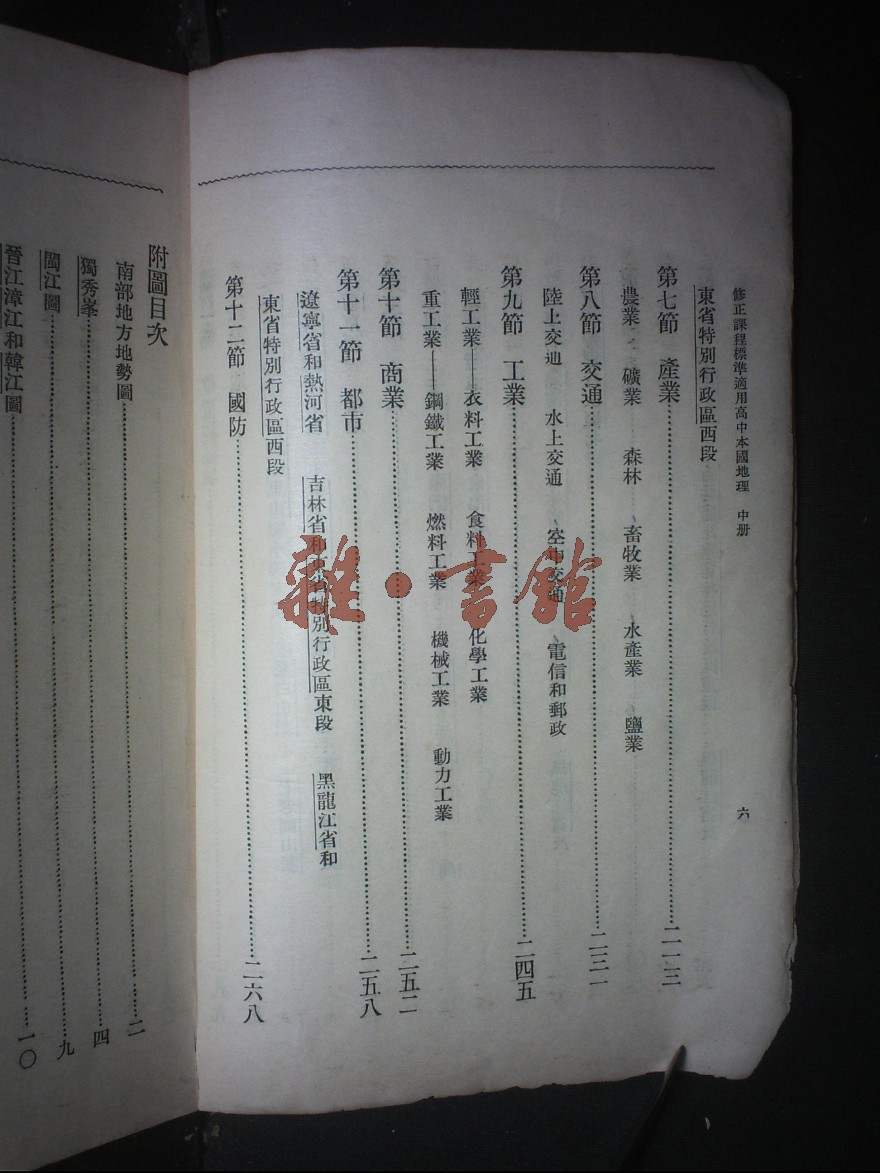 修正課程標準適用高中本國地理 中册
六
東省特別行政區西段
第七節 產業 二一三
農業 礦業 森林 畜牧業 水產業 鹽業
第八節 交通 二三一
陸上交通 水上交通 空中交通 電信和郵政
第九節 工業 二四五
輕工業——衣料工業 食料工業 化學工業
重工業——鋼鐵工業 燃料工業 機械工業 動力工業
第十節 商業 二五二
第十一節 都市 二五八
遼寧省和熱河省 吉林省和東省特別行政區東段 黑龍江省和
東省特別行政區西段
第十二節 國防 二六八
附圖目次
南部地方地勢圖 二
獨秀峯 四
閩江圖 九
晉江漳江和韓江圖 一〇
雜·書館